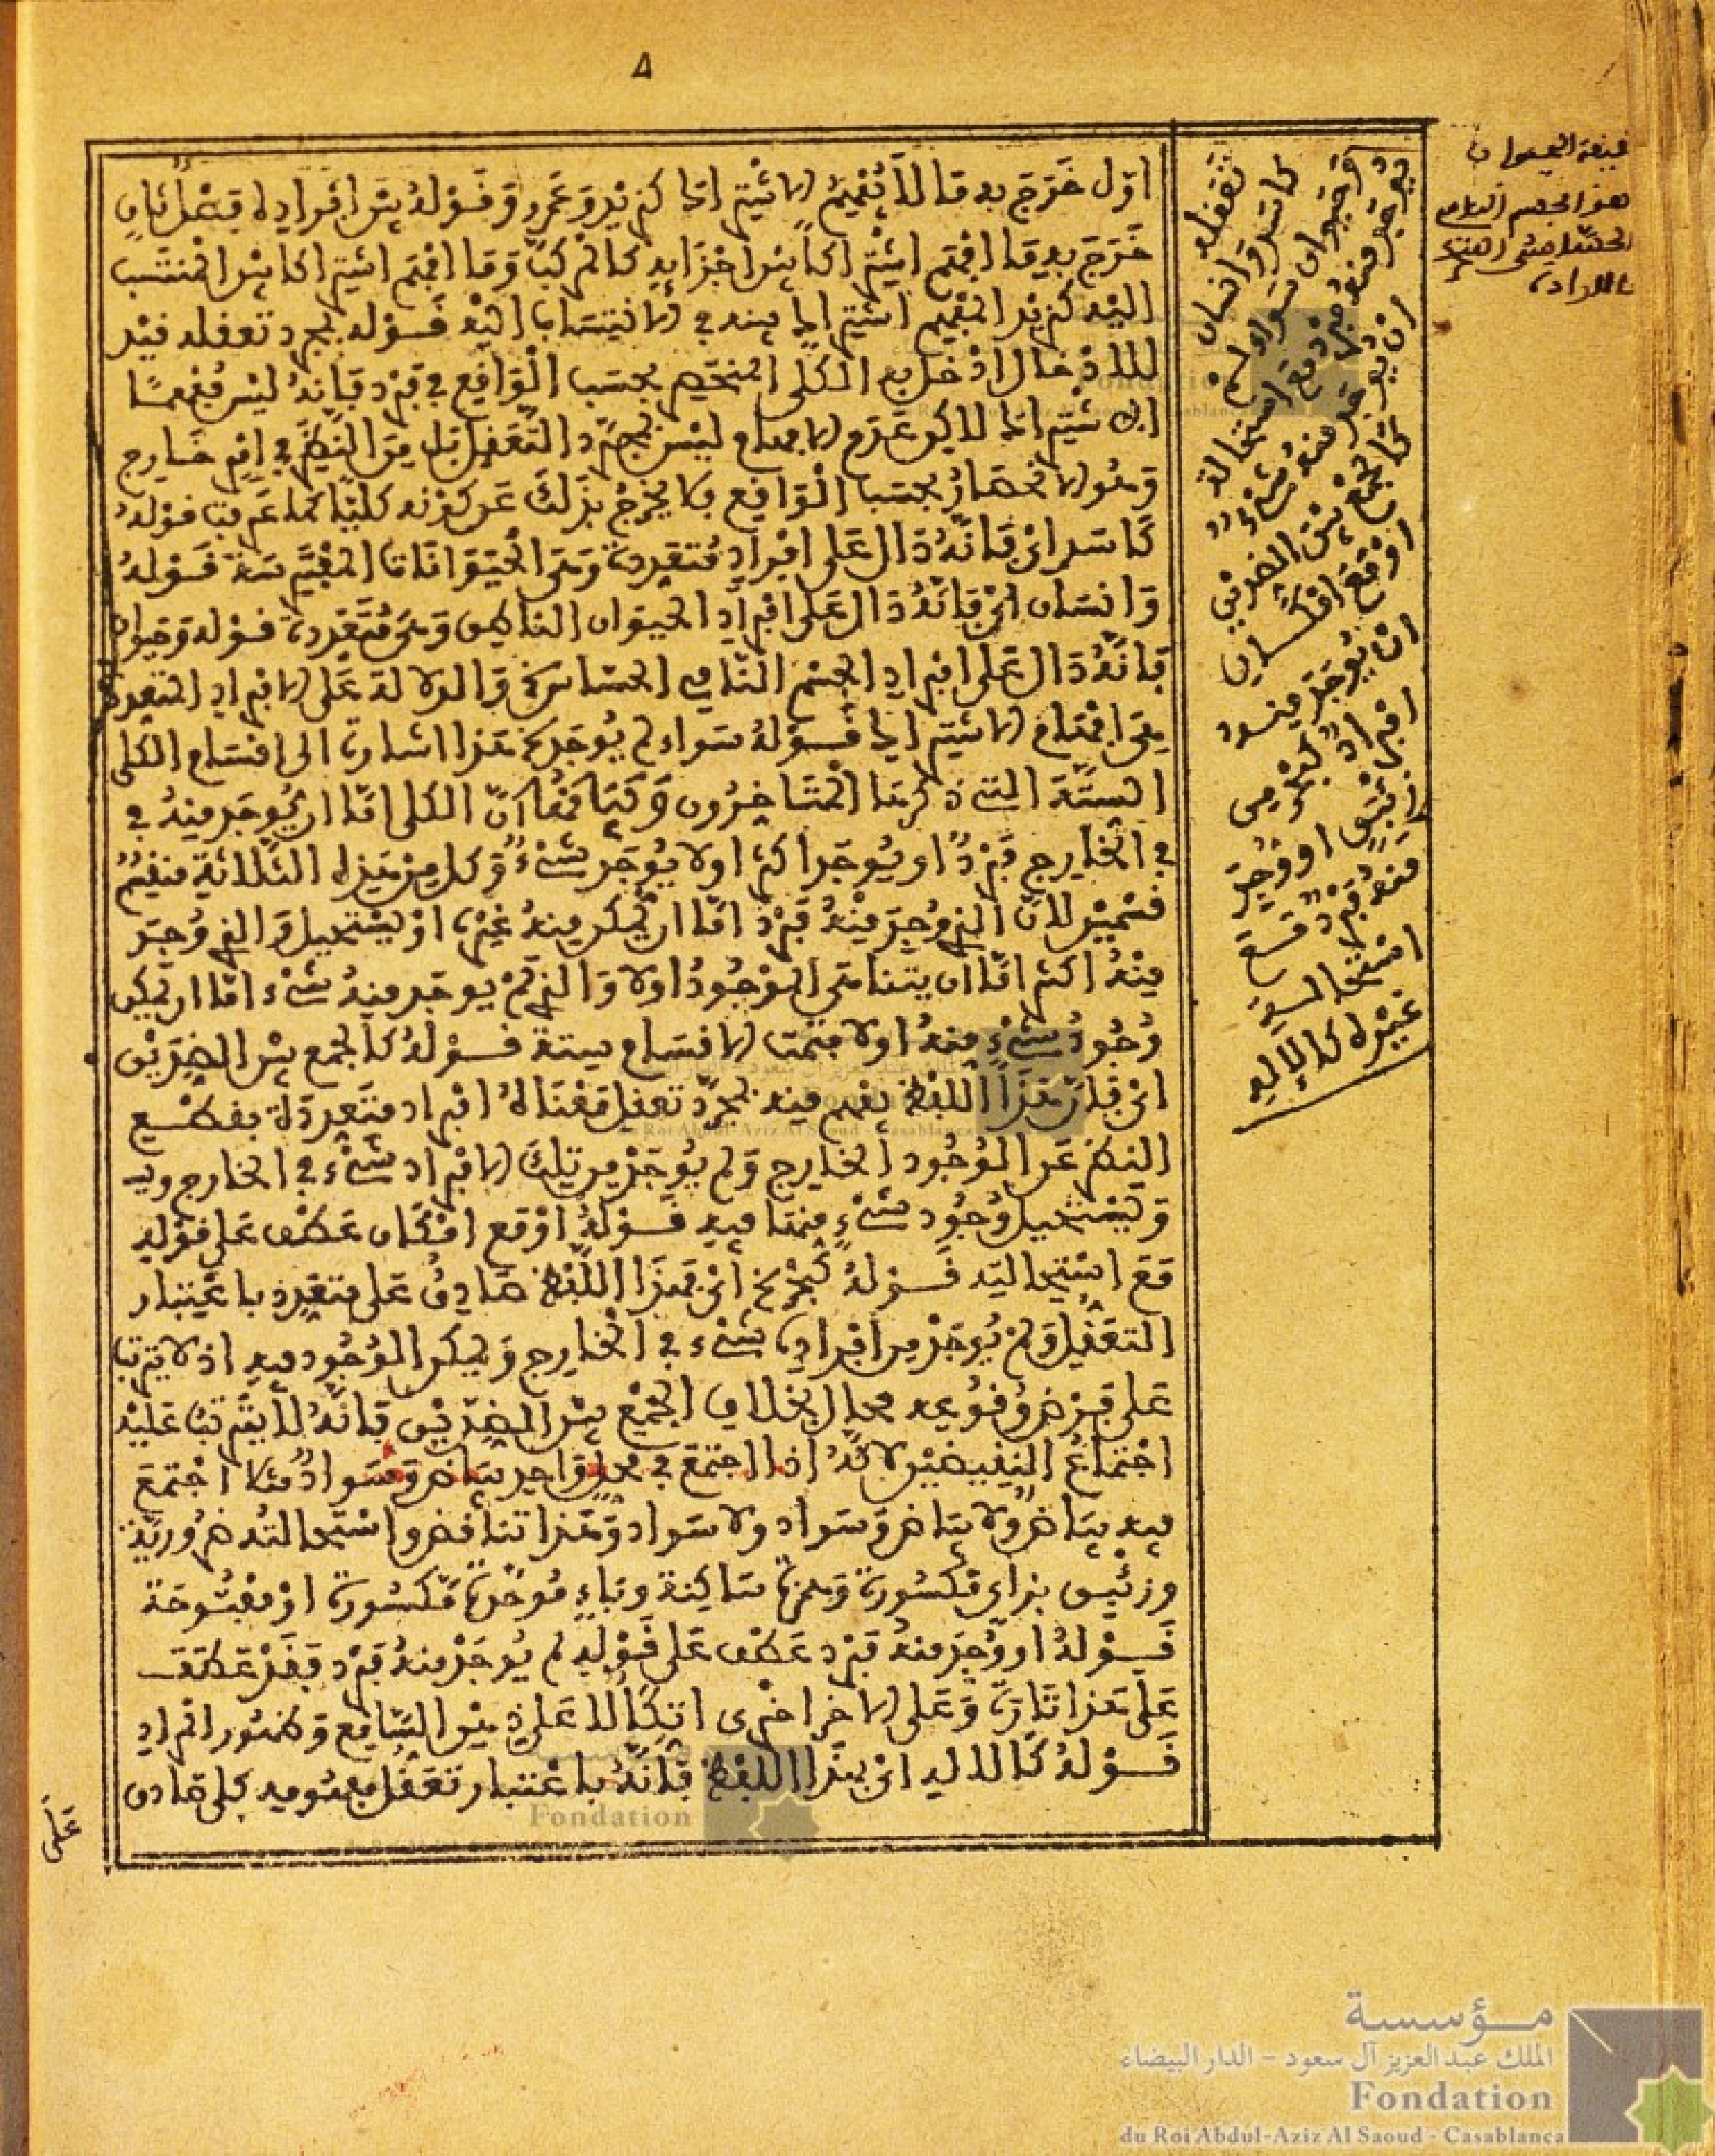 ٨
اول خرج به ما لا يفهم الاشتراك كزيد وعمرو وقوله بين افراده فصل ثان
خرج به ما افهم اشتراكا بين اجزايه كالمركب وما افهم اشتراكا بين المنتسب
اليه كزيد المفهم اشتراك بنيه في الانتساب اليه قوله بمجرد تعقله قيد
للادخال ادخل به الكلي المنحصر بحسب الواقع في فرد فانه ليس مفهما
الاشتراك لاكن عدم الافهام ليس بمجرد التعقل بل من النظر في امر خارج
وهو الانحصار بحسب الواقع فلا يخرج بذلك عن كونه كليا كما عرفت قوله
كاسد اي فانه دال على افراد متعددة وهي الحيوانات المفترسة قوله
وانسان اي فانه دال على افراد الحيوان الناطق وهي متعددة قوله وحيوان
فانه دال على افراد الجسم النامي الحساس الخ والدلالة على الافراد المتعددة
هي افهام الاشتراك قوله سواء لم يوجد الخ هذا اشارة الى اقسام الكلي
الستة التي ذكرها المتاخرون وكيفيتها ان الكلي اما ان يوجد منه في
في الخارج فرد او يوجد اكثر او لا يوجد شيء وكل من هذه الثلاثة منقسم
قسمين لان الذي وجد منه فرد اما ان يمكن منه غيره او يستحيل والذي وجد
منه اكثر اما ان يتناهى الموجود او لا والذي لم يوجد منه شيء اما ان يمكن
وجود شيء منه او لا فتمت الاقسام ستة قوله كالجمع بين الضدين
اي فان هذا اللفظ يفهم منه بمجرد تعقل معناه له افراد متعددة بقطع
النظر عن الموجود الخارج ولم يوجد من تلك الافراد شيء في الخارج ويـ
ويستحيل وجود شيء منها فيه قوله او مع امكان عطف على قوله
مع استحاله قوله كبحر الخ اي فهذا اللفظ صادق على متعدد باعتبار
التعقل ولم يوجد من افراده شيء في الخارج ويمكن الموجود فيه اذ لا يترتب
على فرض وقوعه محال بخلاف الجمع بين الضدين فانه يترتب عليه
اجتماع النقيضين لانه اذا اجتمع في محل واحد بياض وسواد مثلا اجتمع
فيه بياض ولا بياض وسواد ولا سواد وهذا تناقض واستحالته ضرورية
وزئبق بزاي مكسورة وهمزة ساكنة وباء موحدة مكسورة او مفتوحة
قوله او وجد منه فرد عطف على قوله لم يوجد منه فرد فقد عطف
على هذا تارة وعلى الاخر اخرى اتكالا على ذهن السامع وظهور المراد
قوله كالاله اي هذا اللفظ فانه باعتبار تعقل مفهومه كلي صادق
على
تعقله
كاسد وانسان
وحيوان سواء لم
يوجد منه فرد مع استحالة
ان يوجد منه شيء
كالجمع بين الضدين
او مع امكان
ان يوجد منه
افراد كبحر من
زئبق او وجد
منه فرد مع
استحالة
غيره كالاله
الحيوان
هو الجسم النامي
مؤسسة
الملك عبد العزيز آل سعود – الدار البيضاء
Fondation
du Roi Abdul-Aziz Al Saoud - Casablanca